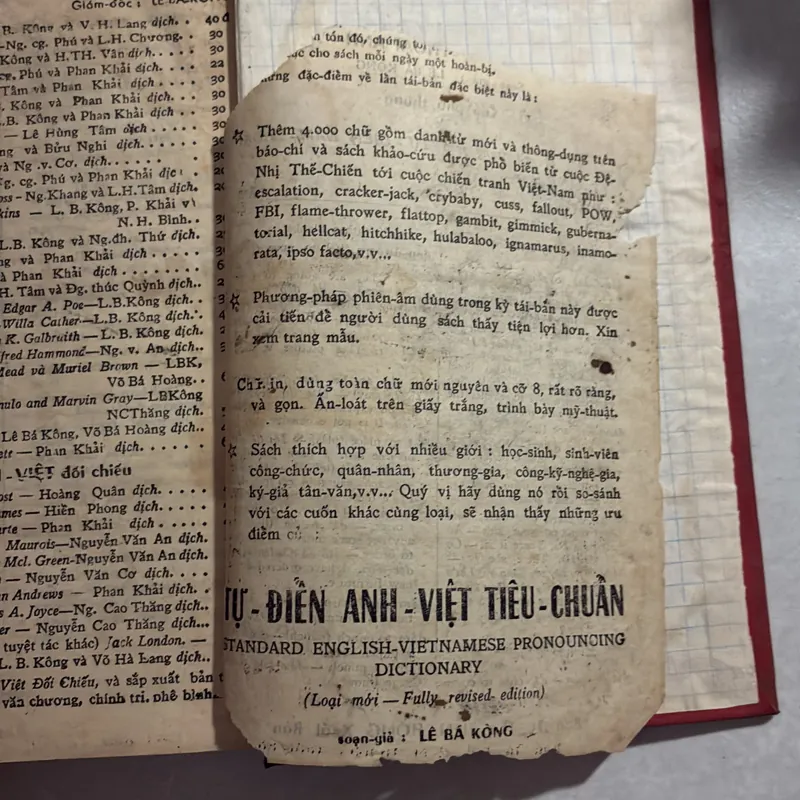 Giám-đốc : LÊ BÁ KÔNG
B. Kông và V. H. Lang dịch. . 40đ
-Ng. cg. Phú và L.H. Chương. . 30
Kông và H.TH. Vân dịch. . . 30
Phú và Phan Khải dịch. . . . 22
Tâm và Phan Khải dịch. . . . 30
Kông và Phan Khải dịch. . . 30
L.B. Kông và Phan Khải dịch. . 30
— Lê Hùng Tâm dịch . . . . 30
và Bửu Nghi dịch. . . . 30
và Ng .v. Cơ. dịch. . . . .
cg. Phú và Phan Khải dịc
oss - Ng.Khang và L.H.Tâm dịch.
kins — L. B. Kông, P. Khải v
N. H. Bình. .
L.B. Kông và Ng.đh. Thứ dịch.
và Phan Khải dịch. . . .
và Phan Khải dịch. . . . . .
H. Tâm và Đg. thúc Quỳnh dịch. .
Edgar A. Poe—L.B.Kông dịch. .
Willa Cather—L.B. Kông dịch. .
K. Galbruith — L. B. Kông dịch.
fred Hammond—Ng. v. An dịch. .
Mead và Muriel Brown — LBK,
Võ Bá Hoàng. .
nulo and Marvin Gray—LBKông
NCThăng dịch.
Lê Bá Kông, Võ Bá Hoàng dịch. .
ett — Phan Khải dịch. . . .
- VIỆT đối chiếu
ost — Hoàng Quân dịch. . . .
mes — Hiền Phong dịch. . . .
arte — Phan Khải dịch. . . .
Maurois—Nguyễn Văn An dịch.
Mcl. Green-Nguyễn Văn An dịch.
— Nguyễn Văn Cơ dịch. . . .
n Andrews — Phan Khải dịch. .
s A. Joyce—Ng. Cao Thăng dịch. .
er — Nguyễn Cao Thăng dịch. . .
tuyệt tác khác) Jack London. —
L. B. Kông và Võ Hà Lang dịch. .
Việt Đối Chiếu, và sắp xuất bản t
văn chương, chính trị, phê bình.
tốn đó, chúng tôi
cho sách mỗi ngày một hoàn-bị.
đặc-điểm về lần tái-bản đặc biệt này là :
☆ Thêm 4.000 chữ gồm danh từ mới và thông-dụng trên
báo-chí và sách khảo-cứu được phổ biến từ cuộc Đệ-
Nhị Thế-Chiến tới cuộc chiến tranh Việt-Nam như :
escalation, cracker-jack, crybaby, cuss, fallout, POW,
FBI, flame-thrower, flattop, gambit, gimmick, guberna-
torial, hellcat, hitchhike, hulabaloo, ignamarus, inamo-
rata, ipso facto,v.v...
☆ Phương-pháp phiên-âm dùng trong kỳ tái-bản này được
cải tiến để người dùng sách thấy tiện lợi hơn. Xin
xem trang mẫu.
Chữ in, dùng toàn chữ mới nguyên và cỡ 8, rất rõ ràng,
và gọn. Ấn-loát trên giấy trắng, trình bày mỹ-thuật.
☆ Sách thích hợp với nhiều giới : học-sinh, sinh-viên
công-chức, quân-nhân, thương-gia, công-kỹ-nghệ-gia,
ký-giả tân-văn,v.v... Quý vị hãy dùng nó rồi so-sánh
với các cuốn khác cùng loại, sẽ nhận thấy những ưu
điểm củ :
TỰ - ĐIỂN ANH - VIỆT TIÊU - CHUẨN
STANDARD ENGLISH-VIETNAMESE PRONOUNCING
DICTIONARY
(Loại mới — Fully revised edition)
soạn-giả : LÊ BÁ KÔNG